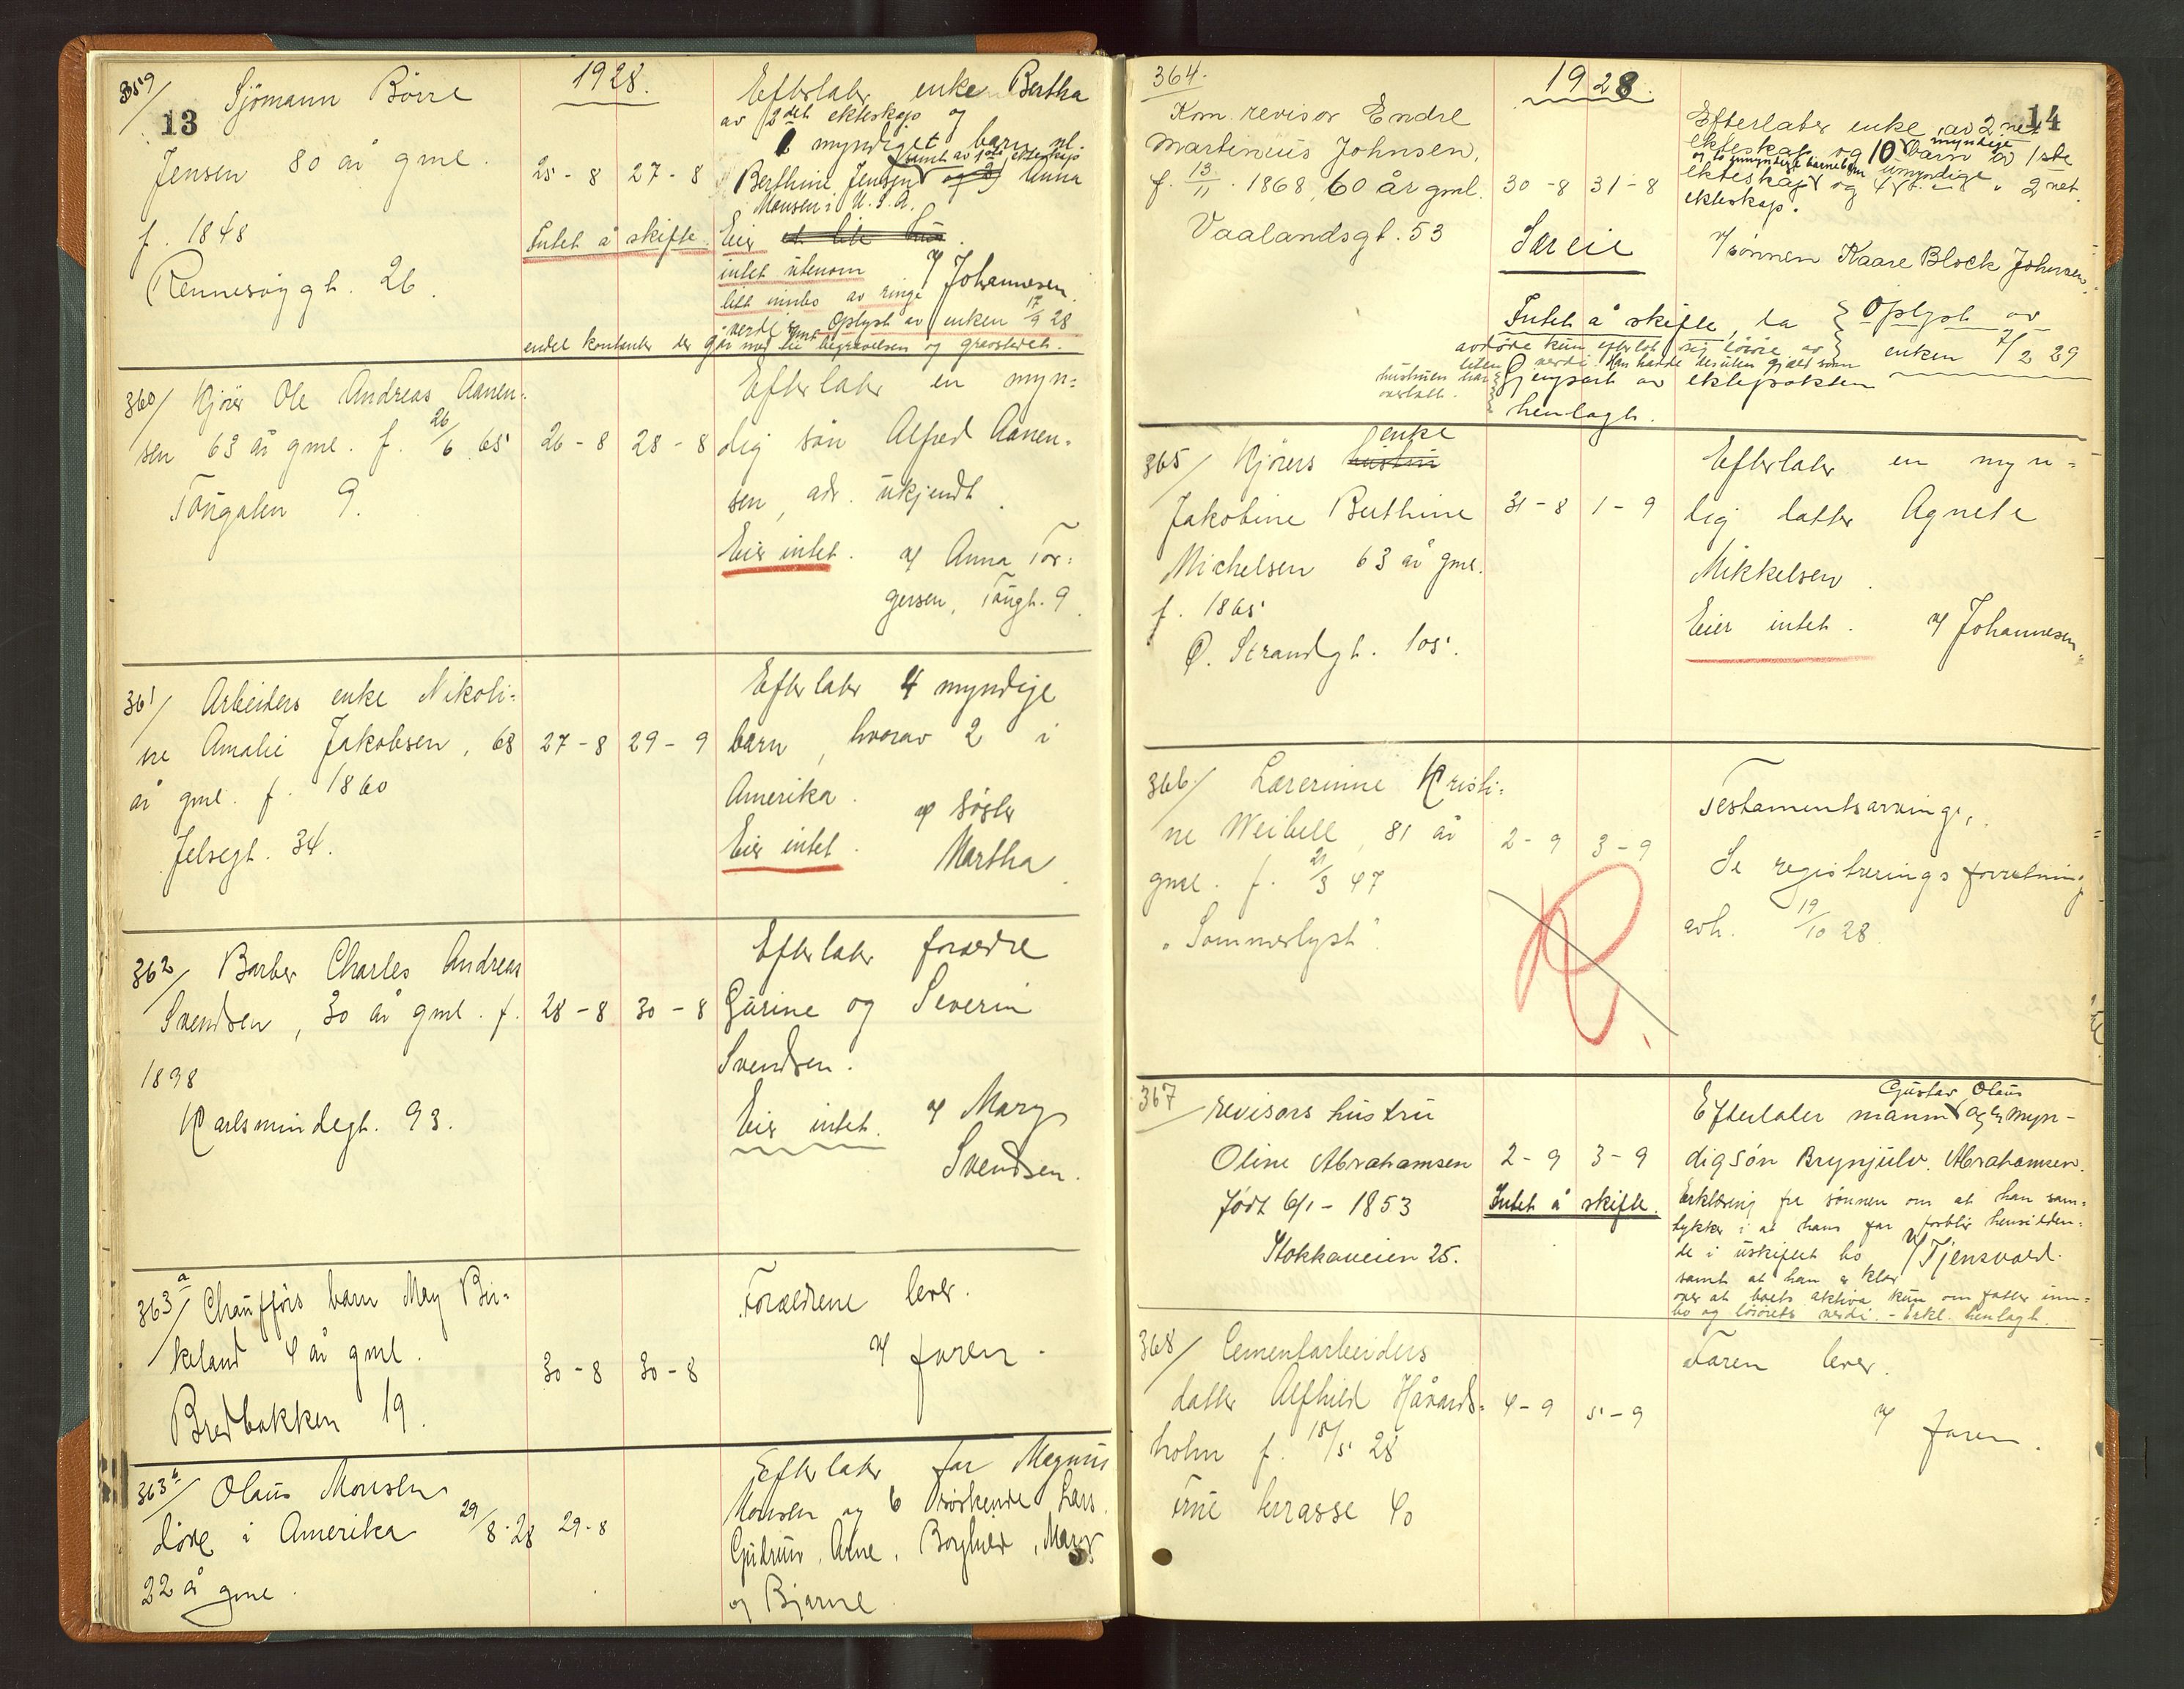 13
1928.
359/ Sjömann Börre
Jensen 80 år gml.
f. 1848
Rennesöygt. 26.
25-8 27-8
Intet å skifte.
Efterlater enke Bertha
av 2det ekteskap og
myndiget barn nl.
samt av 1ste ekteskap
Berthine Jensen og Anna
Monsen i U.S.A.
Eier et lite hus.
intet utenom
litt innbo av ringe
verdi
Johannesen.
Oplyst av enken 17/9 28
endel kontanter der går med til begravelsen og gravstedet.
360/ Kjörer Ole Andreas Aanen-
sen 63 år gml. f. 26/6 65
Tougaten 9.
26-8 28-8
Efterlater en myn-
dig sön Alfred Aanen-
sen, adr. ukjendt.
Eier intet. v/ Anna Tor-
gersen, Tougt. 9.
361/ Arbeiders enke Nikoli-
ne Amalie Jakobsen, 68
år gml. f. 1860
Jelsegt. 34.
27-8 29-9
Efterlater 4 myndige
barn, hvorav 2 i
Amerika.
v/ söster
Eier intet.
Martha.
362/ Barber Charles Andreas
Svendsen, 30 år gml. f.
1898
Karlsmindegt. 93.
28-8 30-8
Efterlater forældre
Gurine og Severin
Svendsen.
Eier intet. v/ Mary
Svendsen.
363a/ Chauffförs barn May Bir-
keland 4 år gml.
Bredbakken 19.
30-8 30-8
Forældrene lever.
v/ faren.
363b/ Olaus Monsen
döde i Amerika 29/8-28
22 år gml.
29-8
Efterlater far Magnus
Monsen og 6 söskende Lars,
Gudrun, Arne, Borghild, Mary
og Bjarne
14
1928.
364.
Kom. revisor Endre
Martinius Johnsen,
f. 13/11. 1868, 60 år gml.
Vaalandsgt. 53
30-8 31-8
Særeie
Efterlater enke av 2net
ekteskap og 10 myndige barn av 1ste
og to umyndige barnebarn
ekteskap og 4 umyndige " 2net
ekteskap.
v/ sönnen Kaare Block Johnsen.
Intet å skifte, da
avdöde kun efterlot sig lösöre av
liten verdi. Han hadde desuten gjæld som
hustruen har
overtatt.
Oplyst av
enken 7/2 29
Gjenpart av ektepakten
henlagt.
365/ Kjörers hustru enke
Jakobine Berthine
Michelsen 63 år gml.
f. 1865
Ø. Strandgt. 105.
31-8 1-9
Efterlater en myn-
dig datter Agnete
Mikkelsen.
Eier intet. v/ Johannesen.
366/ Lærerinne Kristi-
ne Weibell, 81 år
gml. f. 21/3 47
"Sommerlyst".
2-9 3-9
Testamentsarving.
Se registreringsforretning
avh. 19/10 28.
367/ revisors hustru
Oline Abrahamsen
född 6/1-1853
Stokkaveien 25.
2-9 3-9
Intet å skifte.
Gustav Olaus
Efterlater mann og en myn-
dig sön Brynjulv Abrahamsen.
Erklæring fra sönnen om at han sam-
tykker i at hans far forblir hensidden-
de i uskiftet bo v/ Tjensvold.
samt at han er klar
over at boets aktiva kun omfatter inn-
bo og lösörets verdi. - Erkl. henlagt.
368/ Cementarbeiders
datter Alfhild Håvards-
holm f. 18/5 28
Fine terrasse 40
4-9 5-9
Faren lever.
v/ faren.